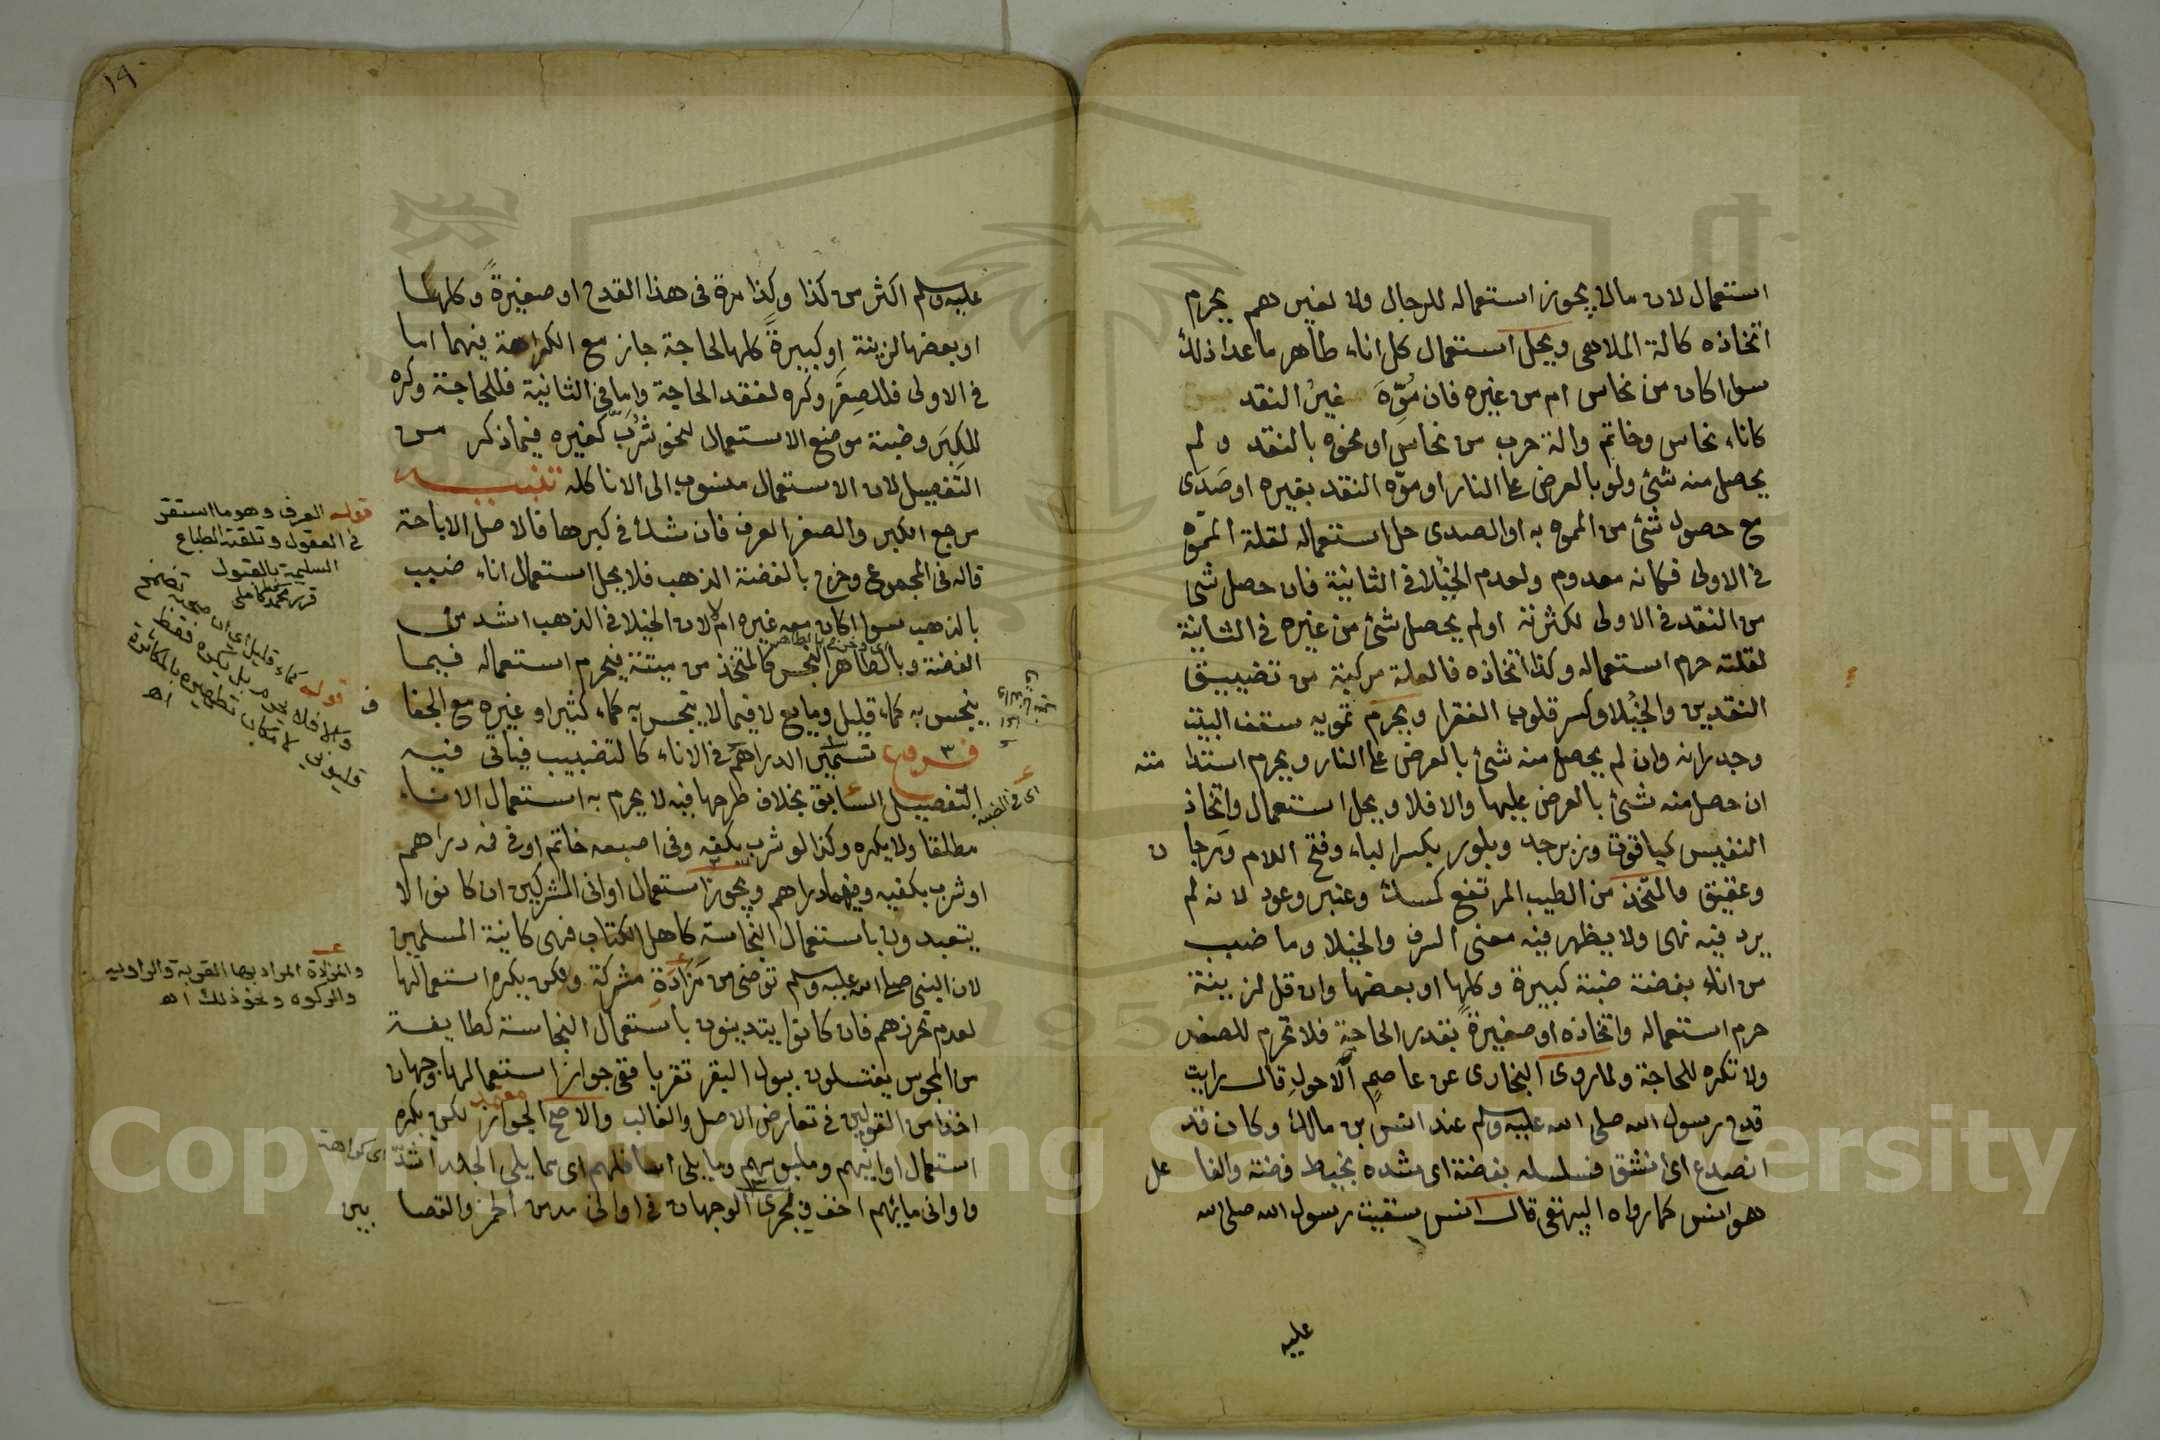 استعمال لان مالا يجوز استعماله للرجال ولا لغيرهم يحرم
اتخاذه كالة الملاهي ويحل استعمال كل اناء طاهر ماعدا ذلك
سوا اكان من نحاس ام من غيره فان مُوِّهَ غيرُ النقد
كاناء نحاس وخاتم والة حرب من نحاس او نحوه بالنقد ولم
يحصل منه شئ ولو بالعرض على النار او موّه النقد بغيره او صَدَى
مع حصول شئ من المموه به او الصدى حل استعماله لقلة المموّه
في الاولى فكانه معدوم ولعدم الخيلا في الثانية فان حصل شئ
من النقد في الاولى لكثرته او لم يحصل شئ من غيره في الثانية
لقلته حرم استعماله وكذا اتخاذه فالعلة مركبة من تضييق
النقدين والخيلا وكسر قلوب الفقرا ويحرم تمويه سقف البيت
وجدرانه وان لم يحصل منه شئ بالعرض على النار ويحرم استدا مته
ان حصل منه شئ بالعرض عليها والا فلا ويحل استعمال واتخاذ
النفيس كياقوت وزبرجد وبلور بكسر الباء وفتح اللام ومرجا ن
وعقيق والمتّخذ من الطيب المرتفع كمسك وعنبر وعود لانه لم
يرد فيه نهى ولا يظهر فيه معنى السرف والخيلا وما ضبب
من اناء بفضة ضبة كبيرة وكلها او بعضها وان قل لزينة
حرم استعماله واتخاذه او صغيرة بقدر الحاجة فلا تحرم للصغر
ولا تكره للحاجة ولما روى البخارى عن عاصم الاحول قال رايت
قدح رسول الله صلى الله عليه وسلم عند انس بن مالك وكان قد
انصدع اى انشق فسلسله بفضة اى شده بخيط فضة والفا عل
هو انس كما رواه البيهقى قال انس سقيت رسول الله صلى الله
عليه
١٩٠
عليه وسلم اكثر من كذا وكذا مرة في هذا القدح او صغيرةً وكلها
او بعضها لزينة او كبيرةً كلها لحاجة جاز مع الكراهة فيهما اما
في الاولى فللصِغَر وكره لفقد الحاجة واما في الثانية فللحاجة وكره
للكِبَر وضبة موضع الاستعمال لنحو شُرْب كغيره فيما ذكر من
التفصيل لان الاستعمال منسوب الى الانا كله تنبيه
مرجع الكبر والصغر العرف فان شك في كبرها فالاصل الاباحة
قاله في المجموع وخرج بالفضة الذهب فلا يحل استعمال اناء ضبب
بالذهب سوا اكان معه غيره ام لا لان الخيلا في الذهب اشد من
الفضة وبالطاهر النجس كالمتخذ من ميتة فيحرم استعماله فيما
ينجس به كماء قليل ومايع لا فيما لا ينجس به كماء كثير او غيره مع الجفا ف
فروع تسمير الدراهم في الاناء كالتضبيب فياتى فيه
التفصيل السابق بخلاف طرحها فيه لا يحرم به استعمال الاناء
مطلقا ولا يكره وكذا لو شرب بكفه وفى اصبعه خاتم او في فه دراهم
او شرب بكفيه وفيهما دراهم ويجوز استعمال اوانى المشركين ان كانوا لا
يتعبدون باستعمال النجاسة كاهل الكتاب فهى كانية المسلمين
لان النبى صلى الله عليه وسلم توضى من مَزَادَةِ مشركة ولكن يكره استعمالها
لعدم تحرزهم فان كانوا يتدينون باستعمال النجاسة كطايفة
من المجوس يغتسلون ببول البقر تقربا ففى جواز استعمالها وجهان
اخذا من القولين في تعارض الاصل والغالب والاصح الجواز لكن يكره
معتمد
استعمال اوانيهم وملبوسهم وما يلى اسافلهم اى مما يلى الجلد اشدّ
واوانى مايئهم اخف ويجرى الوجهان في اوانى مدمن الخمر والقصا بين
قوله العرف وهو ما استقر
في العقول وتلقته الطباع
السليمة بالقبول
قوله كماء قليل اى ان
والا فلا يحرم بل يكره فقط
اهـ
اى في الضبة
والمزادة المراد بها القربة والراوية
والركوه ونحو ذلك اهـ
اى كراهة